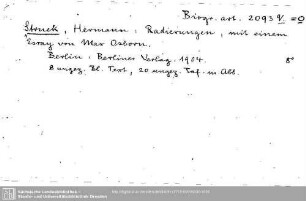 Biogr. art. 2093 V =O
Struck, Hermann: Radierungen, mit einem
Essay von Max Osborn.
Berlin: Berliner Verlag 1904. 8°
8 ungez. Bl. Text, 20 ungez. Taf. m. Abb.
Sächsische Landesbibliothek -
Staats- und Universitätsbibliothek Dresden